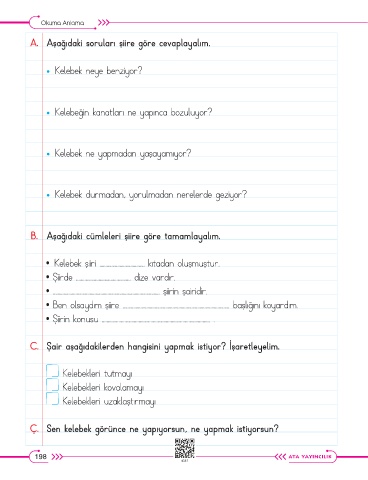 Okuma Anlama
A. Aşağıdaki soruları şiire göre cevaplayalım.
• Kelebek neye benziyor?
• Kelebeğin kanatları ne yapınca bozuluyor?
• Kelebek ne yapmadan yaşayamıyor?
• Kelebek durmadan, yorulmadan nerelerde geziyor?
B. Aşağıdaki cümleleri şiire göre tamamlayalım.
• Kelebek şiiri ........................ kıtadan oluşmuştur.
• Şiirde ............................ dize vardır.
• ........................................................ şiirin şairidir.
• Ben olsaydım şiire ........................................................ başlığını koyardım.
• Şiirin konusu ........................................................ .
C. Şair aşağıdakilerden hangisini yapmak istiyor? İşaretleyelim.
Kelebekleri tutmayı
Kelebekleri kovalamayı
Kelebekleri uzaklaştırmayı
Ç. Sen kelebek görünce ne yapıyorsun, ne yapmak istiyorsun?
198
ATA YAYINCILIK